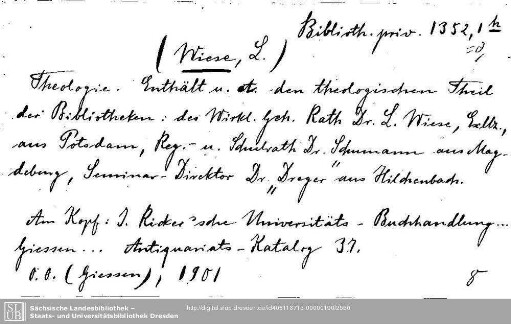 Biblioth. priv. 1352, 1 h
(Wiese, L.)
Theologie. Enthält u. a. den theologischen Theil
der Bibliotheken: des Wirkl. Geh. Rath Dr. L. Wiese, Exllz.,
aus Potsdam, Reg.- u. Schulrath Dr. Schumann aus Mag-
deburg, Seminar-Direktor Dr. Dreger aus Hilchenbach.
Am Kopf: J. Ricker'sche Universitäts-Buchhandlung...
Giessen... Antiquariats-Katalog 37.
O. O. (Giessen), 1901
8
SLUB
Sächsische Landesbibliothek –
Staats- und Universitätsbibliothek Dresden